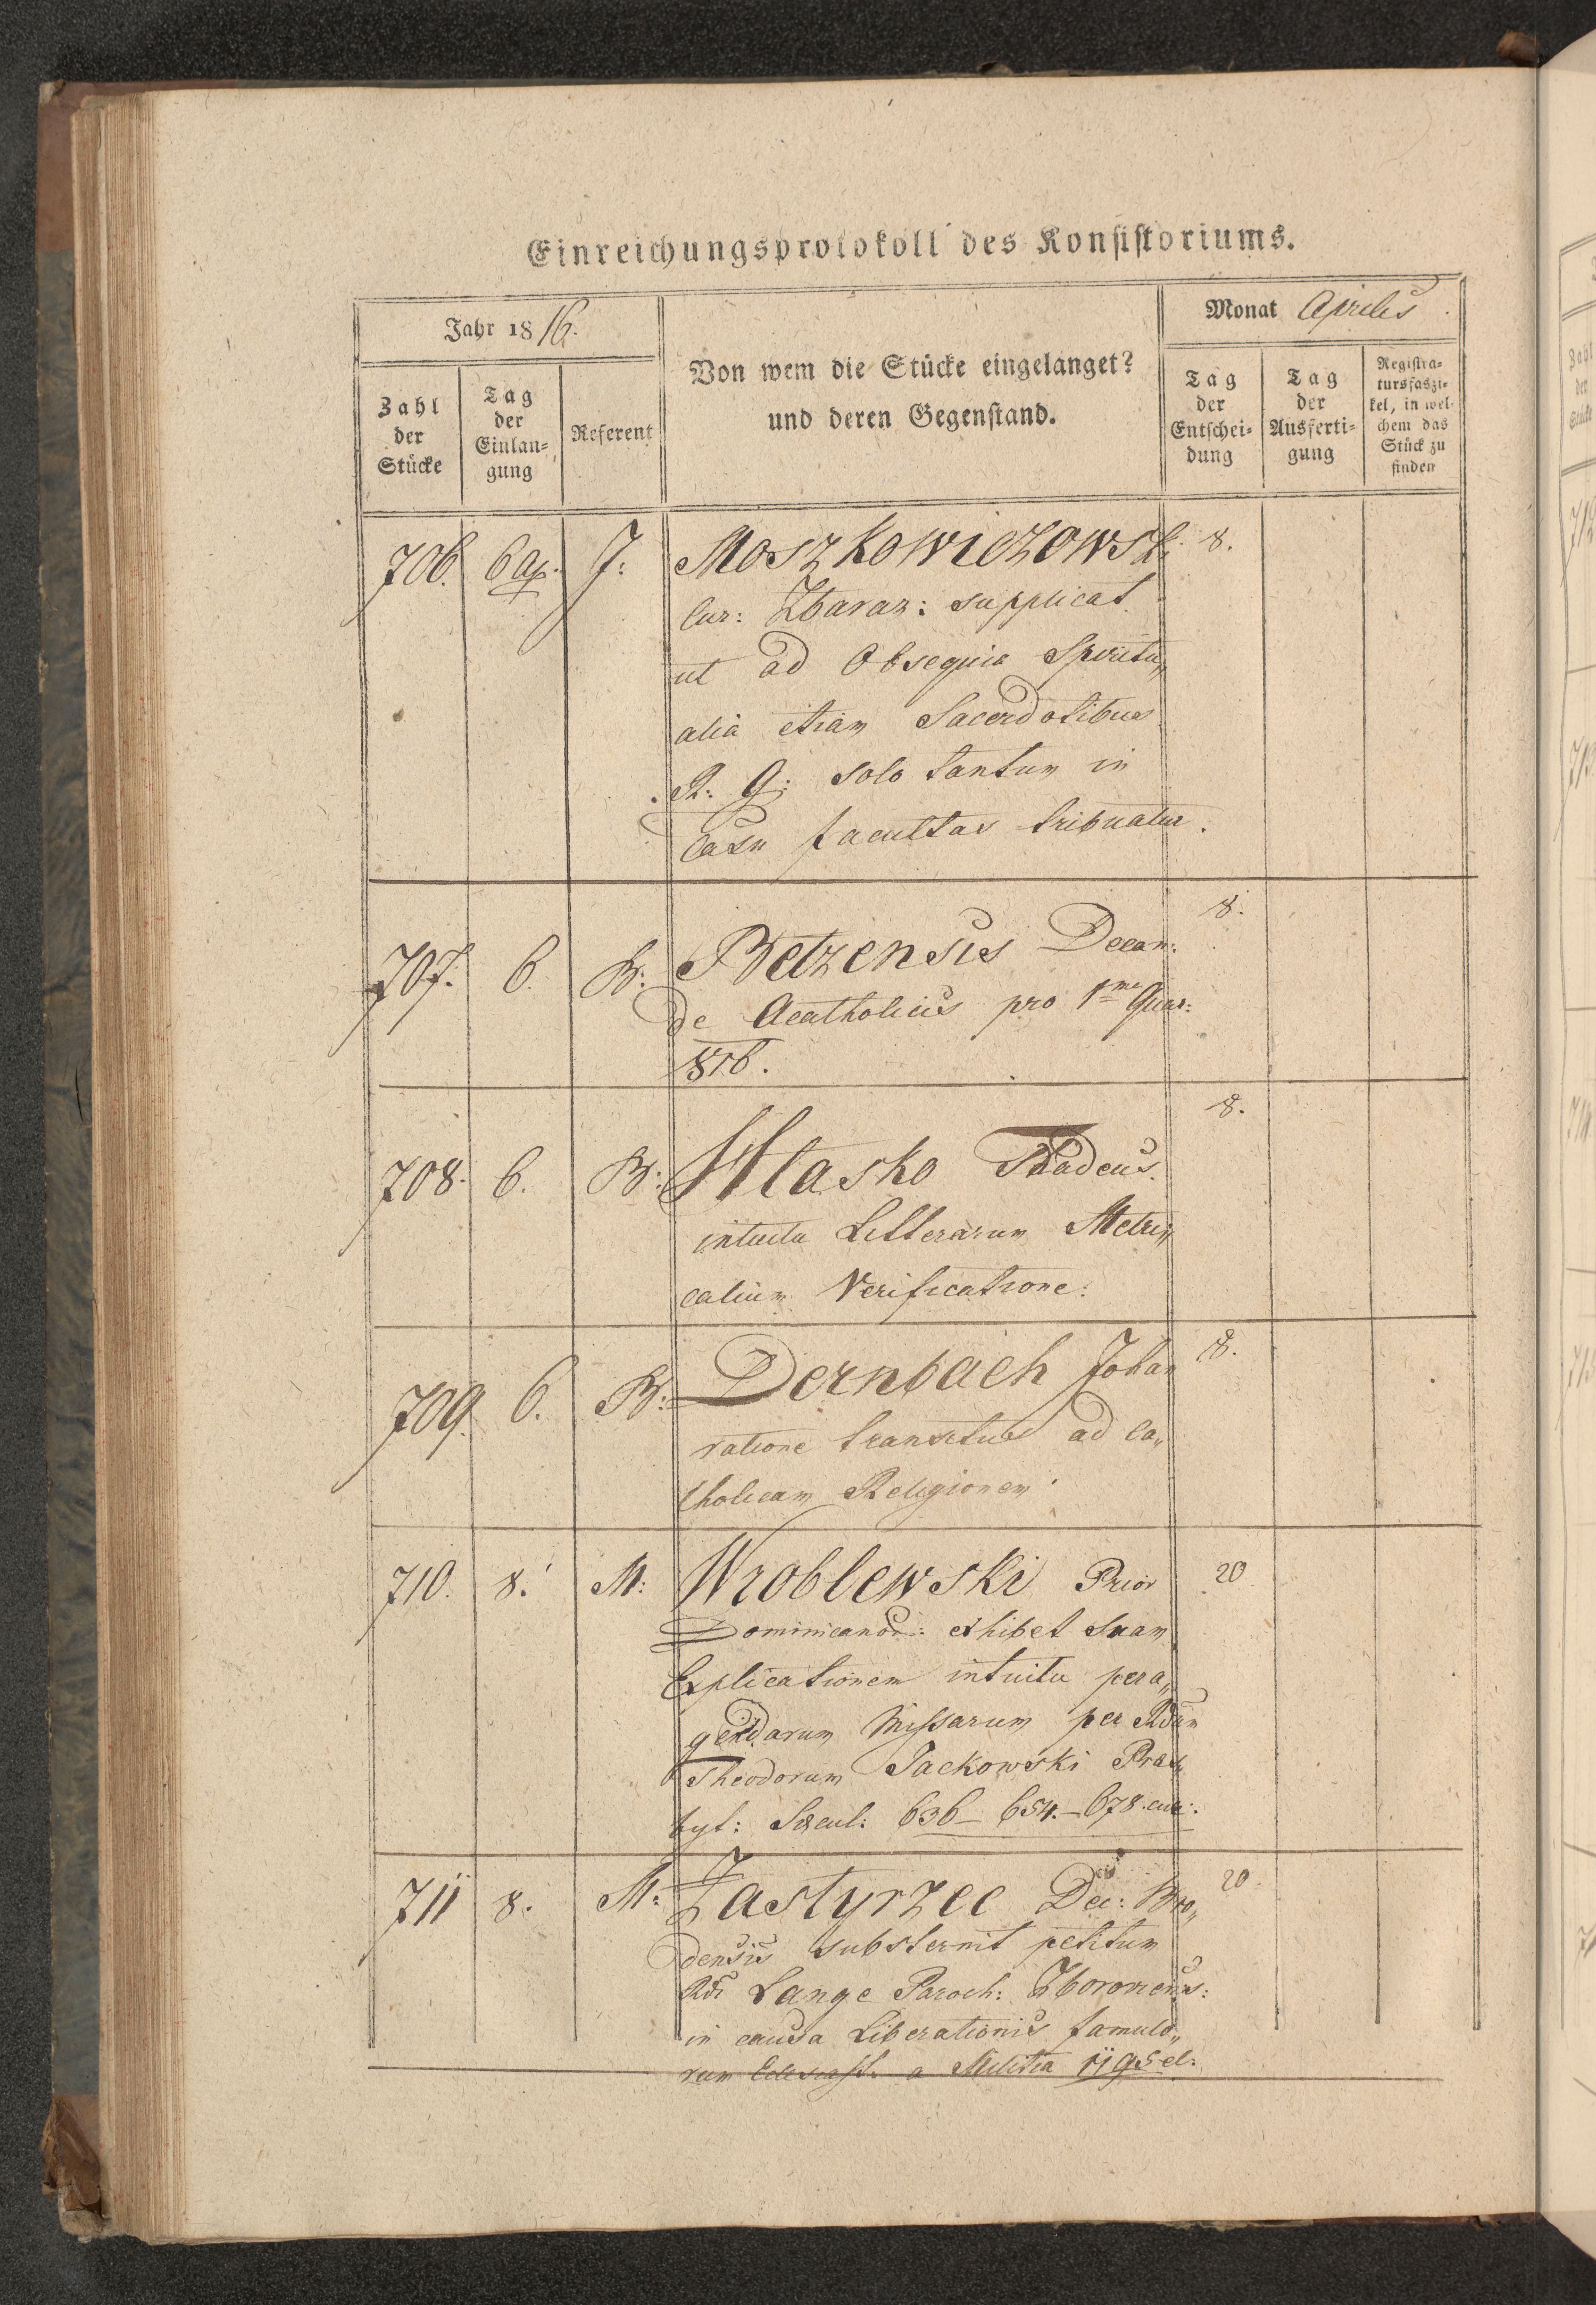 Einreichungsprotokoll des Konsistoriums.
Jahr 1816.
Monat Aprilis.
Zahl der Stücke
Tag der Einlan=gung
Referent
Von wem die Stücke eingelanget?
und deren Gegenstand.
Tag der Entschei=dung
Tag der Ausferti=gung
Registra=tursfaszi=kel, in wel=chem das Stück zu finden
706. 6 Ap. J: Moszkowiczowski 8.
Cur: Zbaraz: supplicat
ut ad Obsequia Spiritu„
alia etiam Sacerdotibus
R: G: solo tantum in
Casu facultas tribuatur.
707. 6. B: Betzensis Decan: 8.
de Acatholicis pro 1me Quar:
1816.
708. 6. B: Hlasko Thadeus. 8.
intuitu Litterarum Metri„
calium Verificatione.
709. 6. B: Dernbach Johan 8.
ratione transitus ad Ca„
tholicam Religionem
710. 8. M: Wroblewski Prior 20
Dominicanor: exhibet Suam
Explicationem intuitu pera„
gendarum Missarum per Rdum
Theodorum Jackowski Pras„
byt: Saecul: 636 – 654. – 678.
711 8. M: Zastyrzec Dec: Bro„ 20
densis substernit petitum
Rdi Lange Paroch: Zboroviens:
in causa Liberationis famulo„
rum Eclesiast: a Militia